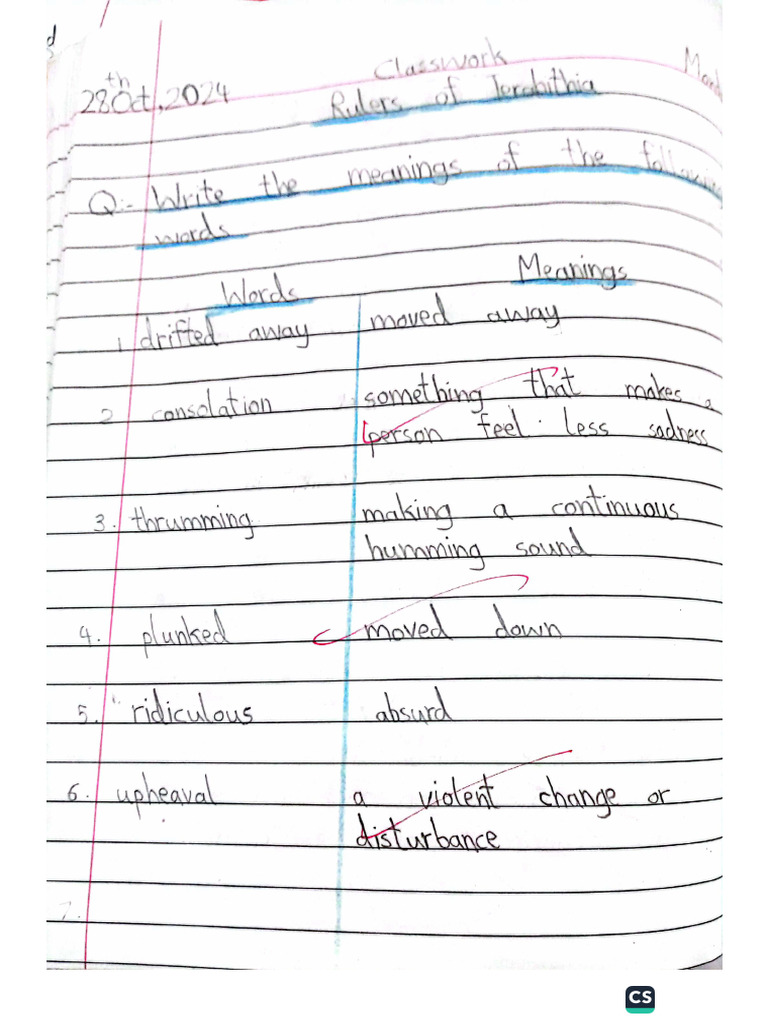 Classwork
28th Oct, 2024
Rulers of Terabithia
Q:- Write the meanings of the following
words
Words Meanings
1 drifted away moved away
2 consolation something that makes a
person feel less sadness
3. thrumming making a continuous
humming sound
4. plunked moved down
5. ridiculous absurd
6. upheaval a violent change or
disturbance
7.
CS